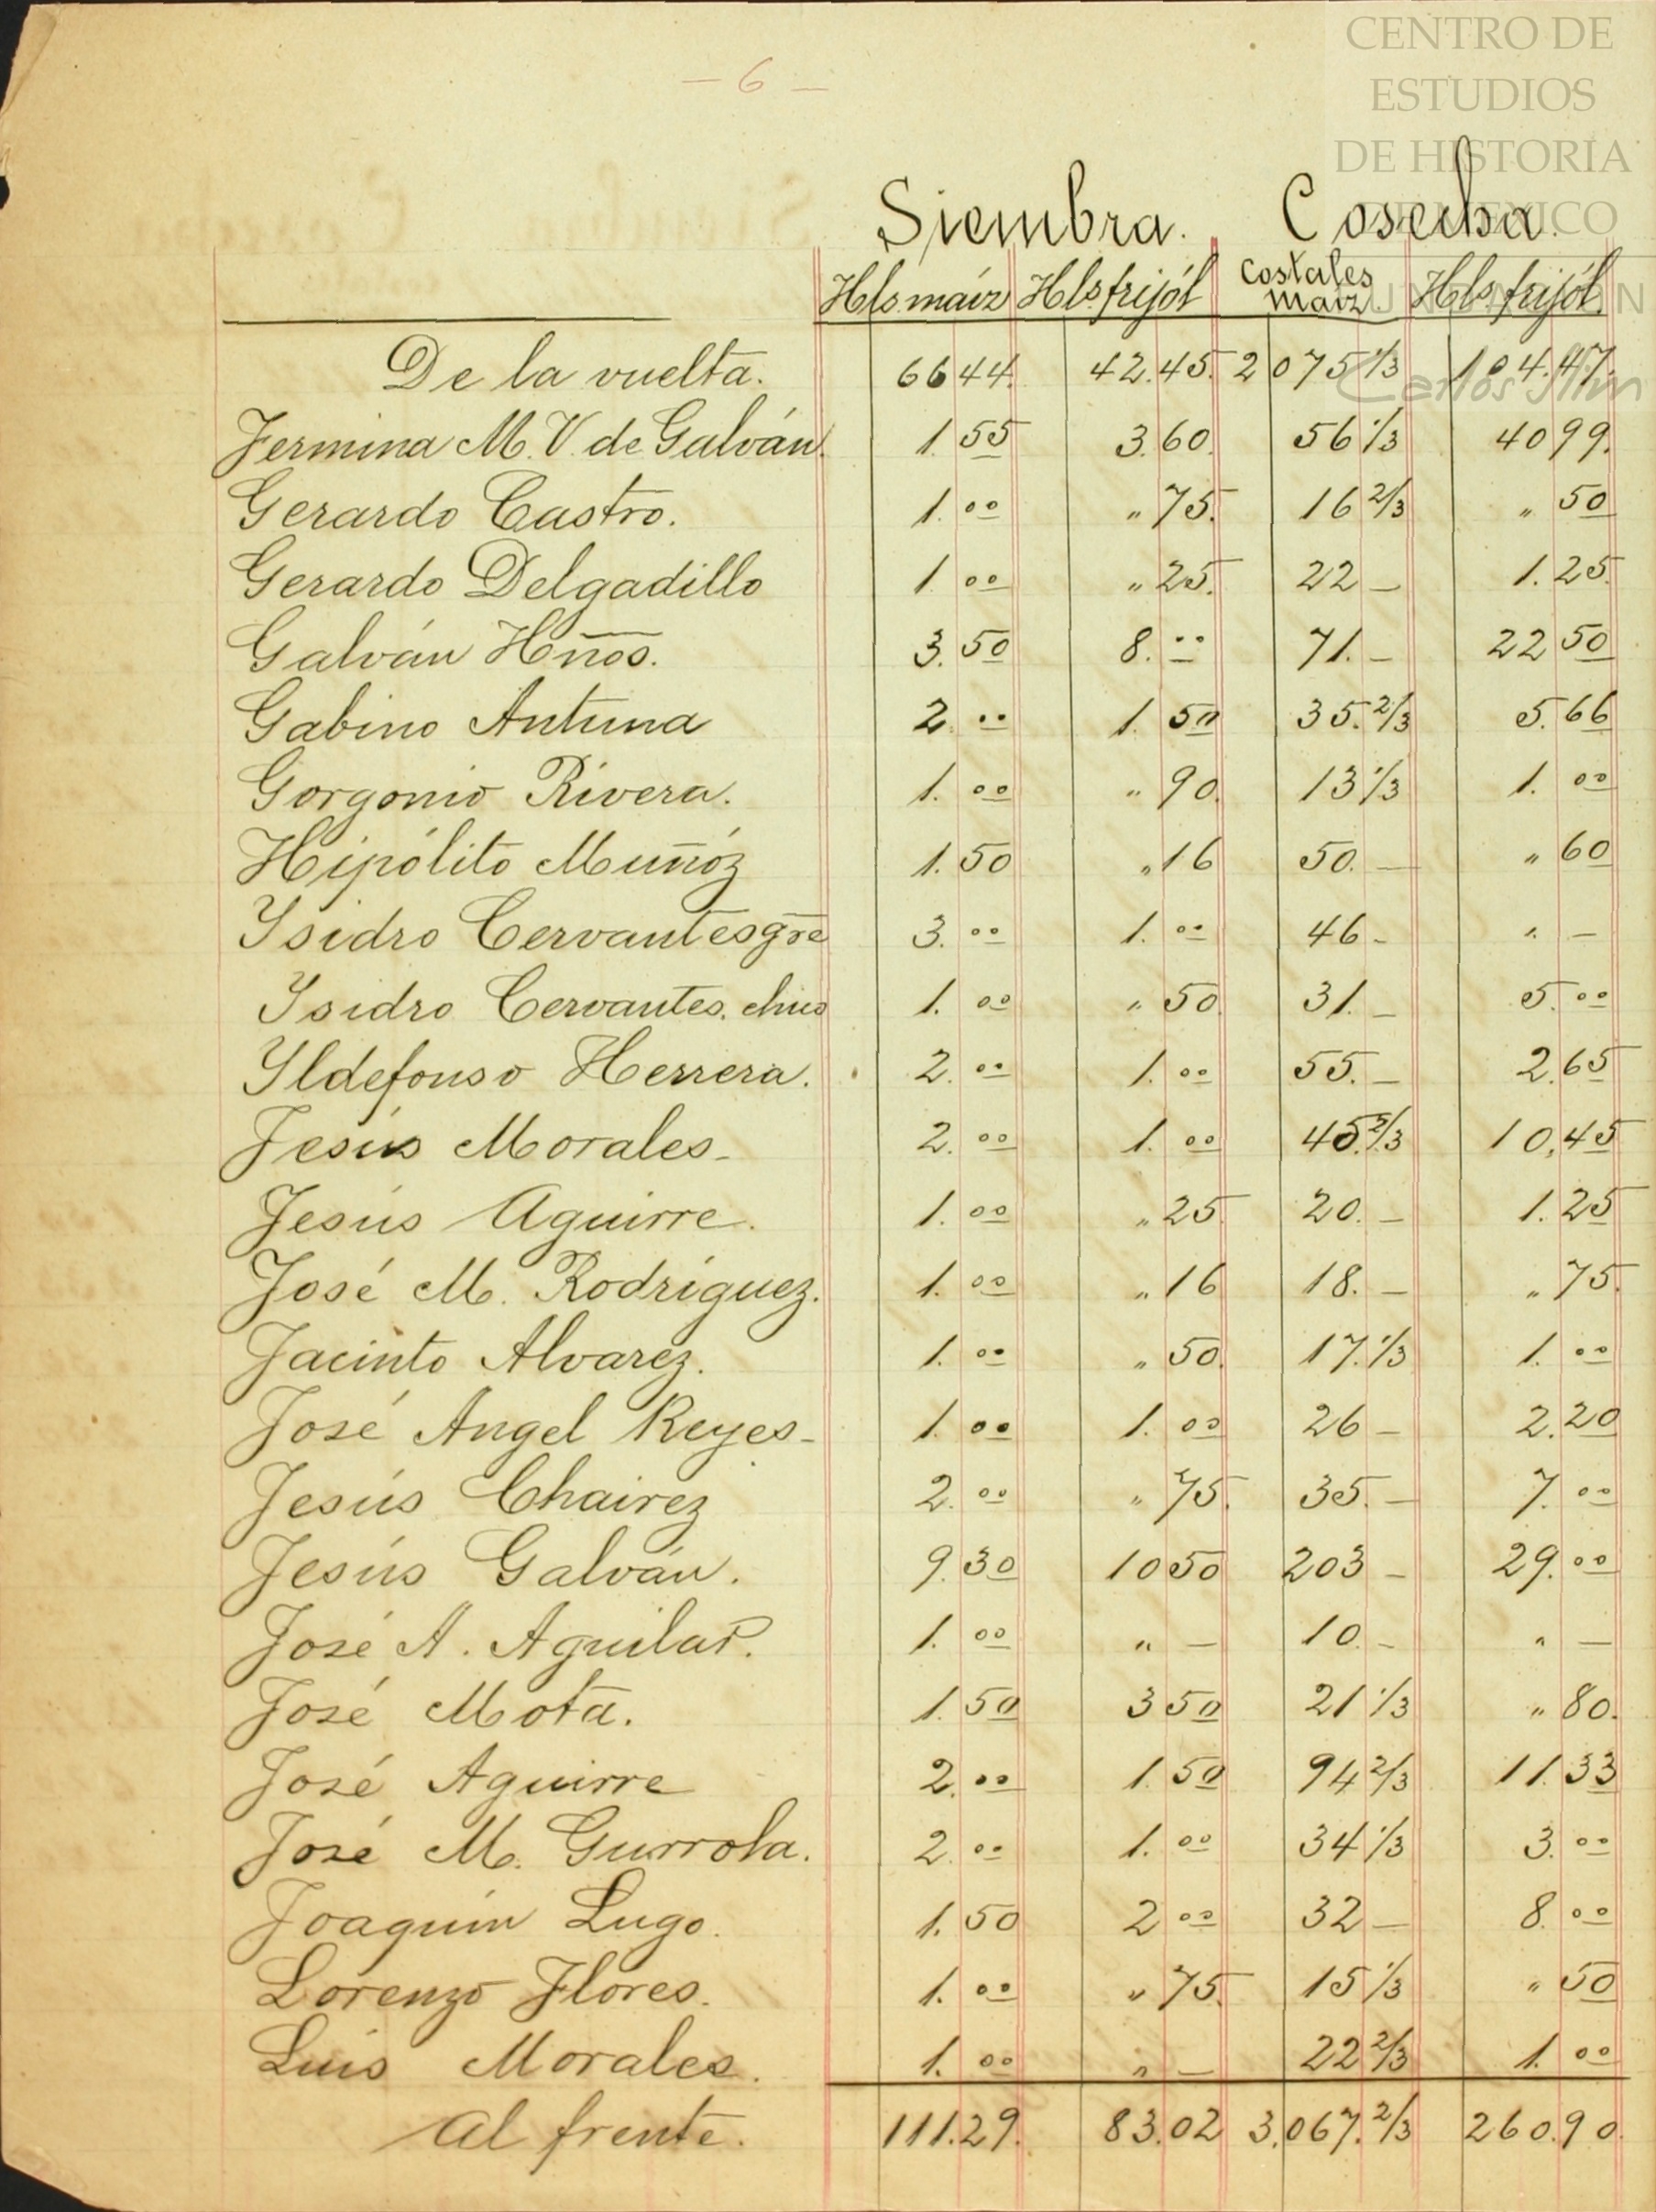 CENTRO DE
ESTUDIOS
DE HISTORIA
DE MÉXICO
Carlos Slim
- 6 -
Siembra. Cosecha.
Hls. maíz Hls. frijól Costales maíz. Hls. frijól.
De la vuelta. 66 44. 42.45. 2 075 1/3 104.47.
Fermina M. V. de Galván. 1.55 3.60. 56 1/3 40 99.
Gerardo Castro. 1.00 " 75. 16 2/3 " 50
Gerardo Delgadillo 1 00 " 25. 22 — 1.25.
Galván Hños. 3.50 8.00 71. — 22 50
Gabino Antuna 2.00 1.50 35. 2/3 5.66
Gorgonio Rivera. 1.00 " 90. 13 1/3 1.00
Hipólito Muñóz 1.50 " 16 50. — " 60
Ysidro Cervantes gre 3.00 1.00 46 - " —
Ysidro Cervantes. chico 1.00 " 50 31. — 5.00
Yldefonso Herrera. 2.00 1.00 55. — 2.65
Jesús Morales - 2.00 1.00 45. 2/3 10,45
Jesús Aguirre. 1.00 " 25. 20. — 1.25
José M. Rodríguez. 1.00 " 16 18. — " 75.
Jacinto Alvarez. 1.00 " 50. 17. 1/3 1.00
José Angel Reyes - 1.00 1.00 26 — 2.20
Jesús Chairez 2.00 " 75. 35. — 7.00
Jesús Galván. 9.30 10 50 203 — 29.00
José A. Aguilar. 1.00 " — 10. - " —
José Mota. 1.50 3 50 21 1/3 " 80.
José Aguirre 2.00 1.50 94 2/3 11.33
José M. Gurrola. 2.00 1.00 34 1/3 3.00
Joaquín Lugo. 1.50 2 00 32 — 8.00
Lorenzo Flores. 1.00 " 75. 15 1/3 " 50
Luis Morales. 1.00 " — 22 2/3 1.00
Al frente. 111.29. 83.02 3.067. 2/3 260.90.